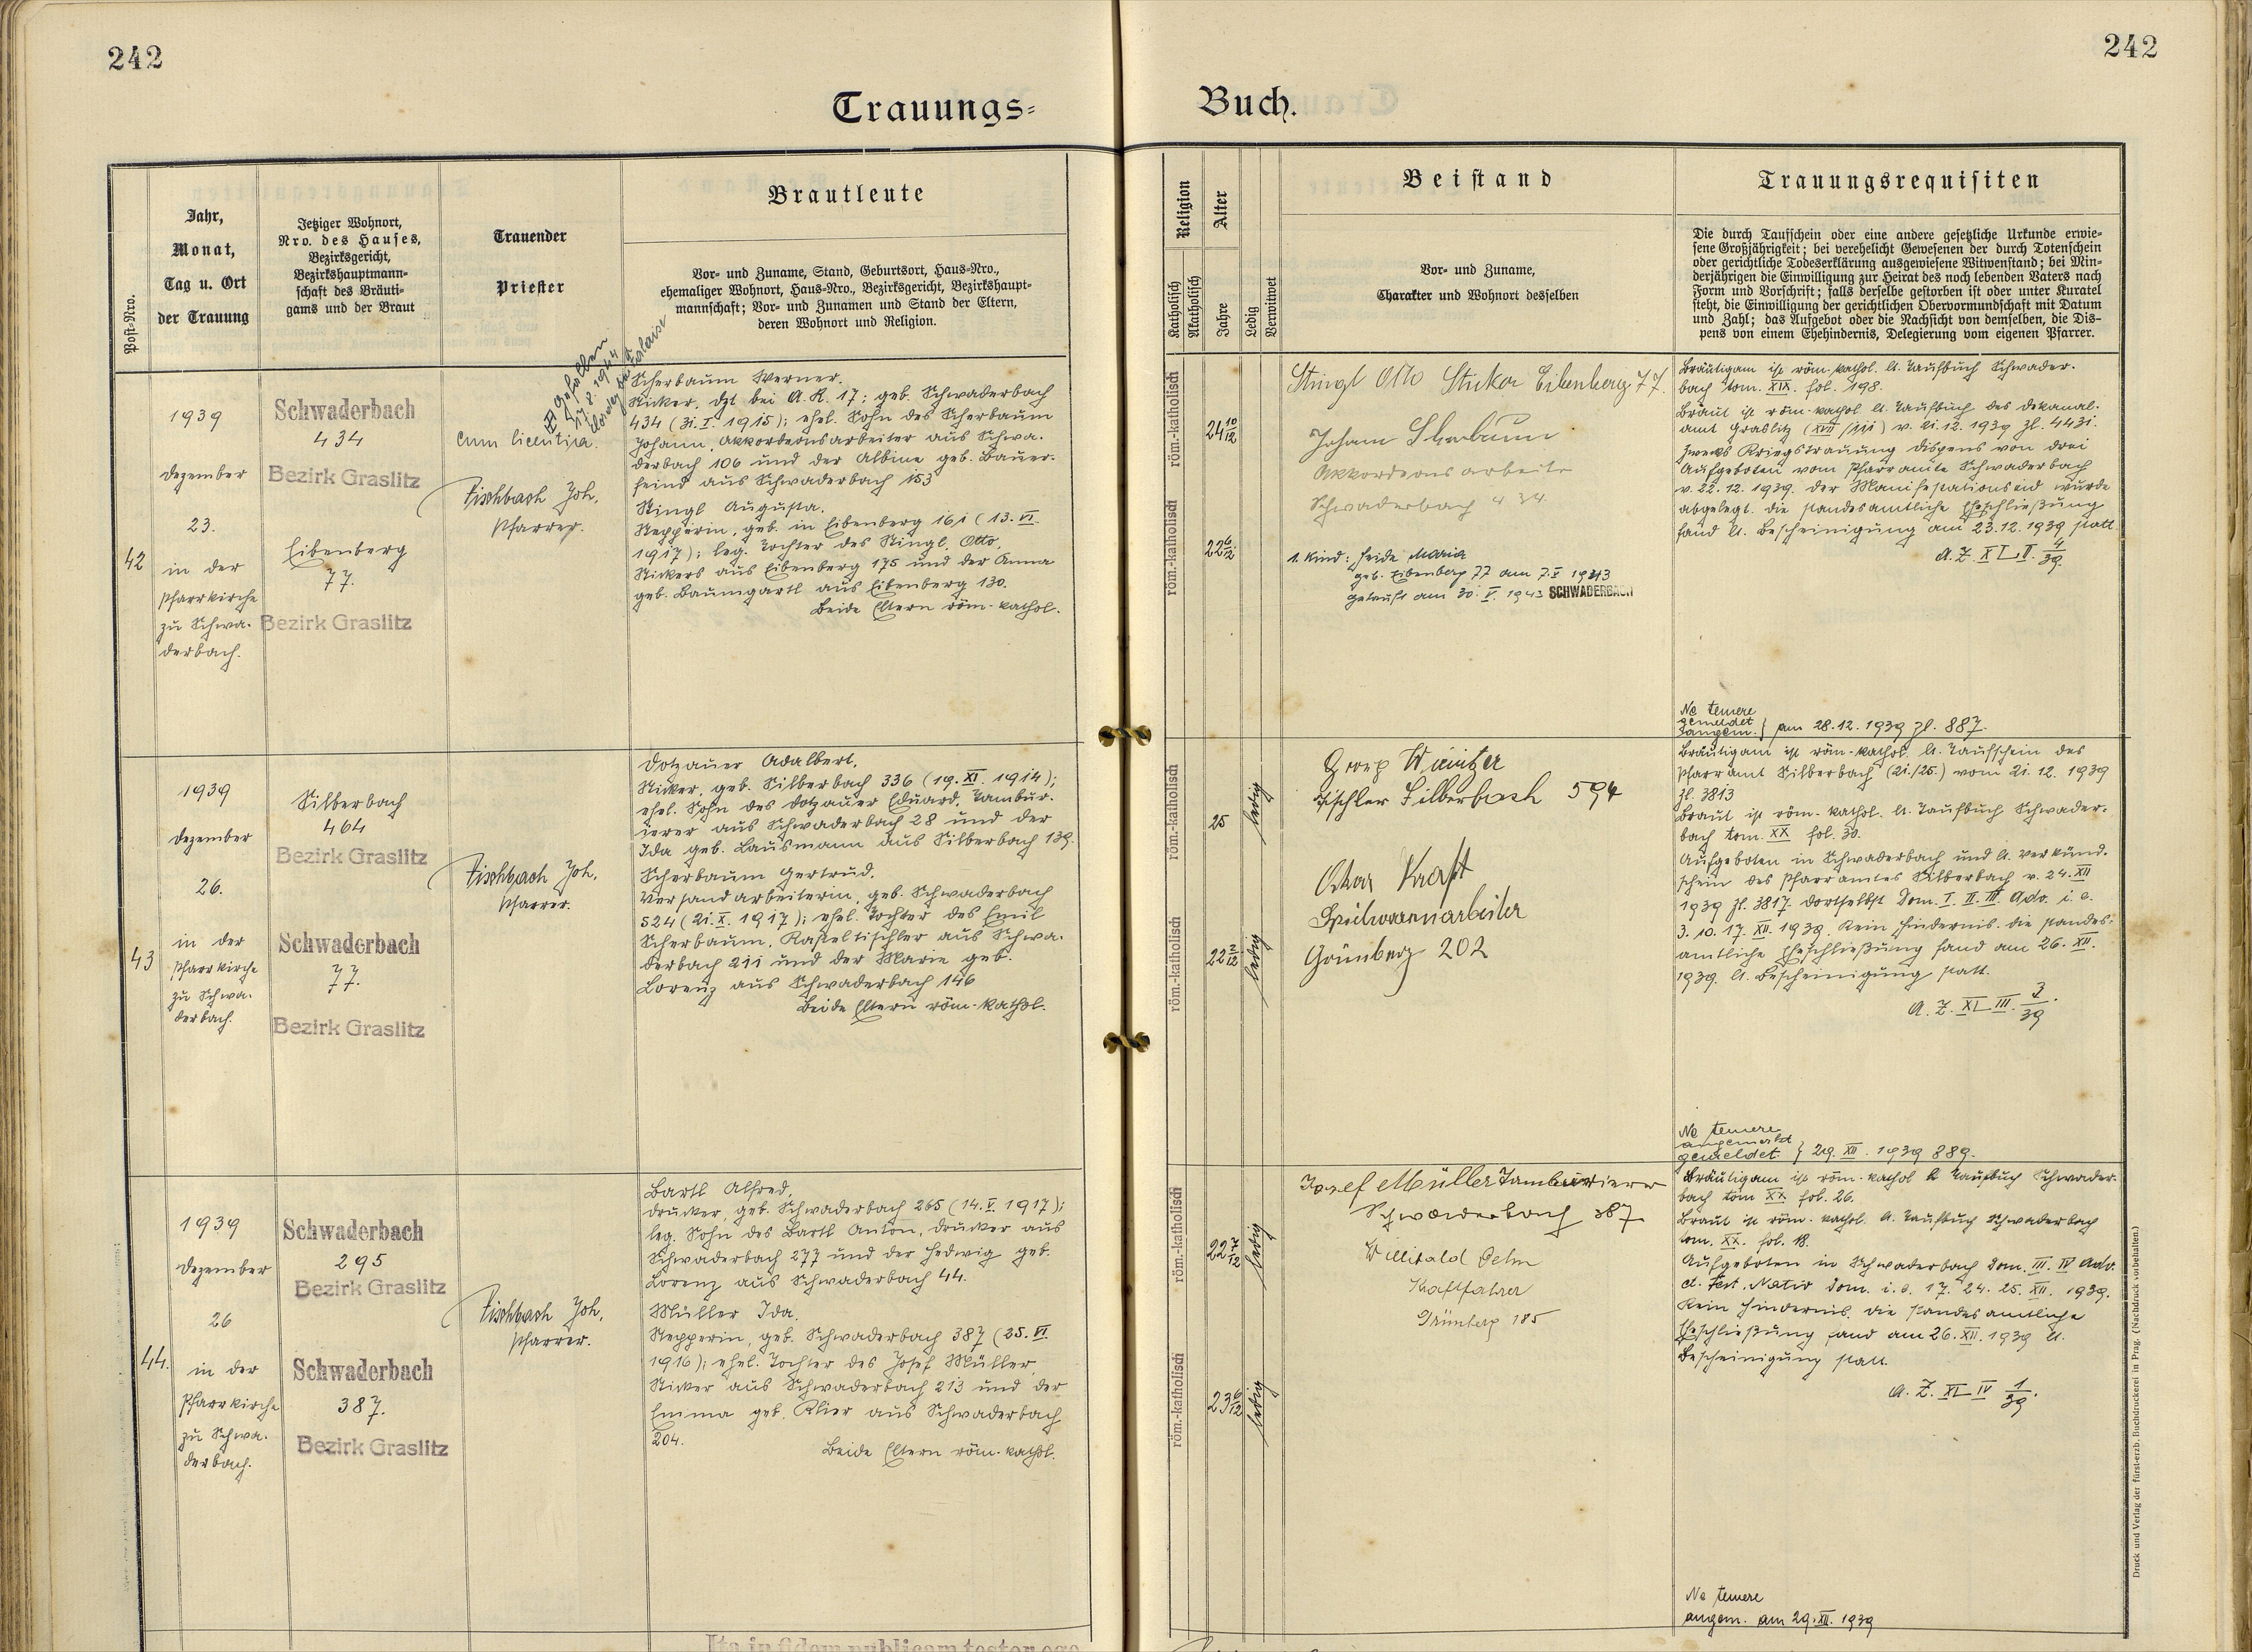 242
242
Trauungs=
Buch.
Post-Nro.
Jahr,
Monat,
Tag u. Ort
der Trauung
Jetziger Wohnort,
Nro. des Hauses,
Bezirksgericht,
Bezirkshauptmann=
schaft des Bräuti=
gams und der Braut
Trauender
Priester
Brautleute
Vor- und Zuname, Stand, Geburtsort, Haus=Nro.,
ehemaliger Wohnort, Haus=Nro., Bezirksgericht, Bezirkshaupt=
mannschaft; Vor- und Zunamen und Stand der Eltern,
deren Wohnort und Religion.
Religion
Katholisch
Akatholisch
Alter
Jahre
Ledig
Verwitwet
Beistand
Vor- und Zuname,
Charakter und Wohnort desselben
Trauungsrequisiten
Die durch Taufschein oder eine andere gesetzliche Urkunde erwie=
sene Großjährigkeit; bei verehelicht Gewesenen der durch Totenschein
oder gerichtliche Todeserklärung ausgewiesene Witwenstand; bei Min=
derjährigen die Einwilligung zur Heirat des noch lebenden Vaters nach
Form und Vorschrift; falls derselbe gestorben ist oder unter Kuratel
steht, die Einwilligung der gerichtlichen Obervormundschaft mit Datum
und Zahl; das Aufgebot oder die Nachsicht von demselben, die Dis=
pens von einem Ehehindernis, Delegierung vom eigenen Pfarrer.
42
1939
Dezember
23.
in der
Pfarrkirche
zu Schwa-
derbach.
Schwaderbach
434
Bezirk Graslitz
Eibenberg
77.
Bezirk Graslitz
Gefallen
1944
cum licentia.
Fischbach Joh.
Pfarrer.
Scherbaum Werner.
Sticker, dzt bei A. R. 17; geb. Schwaderbach
434 (31. I. 1915); ehel. Sohn des Scherbaum
Johann, Akkordeonsarbeiter aus Schwa-
derbach 106 und der Albine geb. Bauer-
feind aus Schwaderbach 153
Stingl Augusta.
Stepperin, geb. in Eibenberg 161 (13. VI.
1917); leg. Tochter des Stingl, Otto,
Stickers aus Eibenberg 175 und der Anna
geb. Baumgartl aus Eibenberg 130.
Beide Eltern röm-kathol.
röm.-katholisch
24 10/12
röm.-katholisch
22 6/12
Stingl Otto Sticker Eibenberg 77.
Johann Scherbaum
Akkordeonsarbeiter
Schwaderbach 434
1. Kind: Heide Maria
geb. Eibenberg 77 am 7. V 1943
getauft am 30. V. 1943 SCHWADERBACH
Bräutigam ist röm-kathol. lt. Taufbuch Schwader-
bach tom. XIX. fol. 198.
Braut ist röm-kathol lt. Taufbuch des Dekanal-
amt Graslitz (XVII/111) v. 21.12.1939 Zl. 4431.
Zwecks Kriegstrauung Dispens von drei
Aufgeboten vom Pfarramte Schwaderbach
v. 22.12.1939. Der Manifestationseid wurde
abgelegt. Die standesamtliche Eheschließung
fand lt. Bescheinigung am 23.12.1939 statt
A. Z. XL II. 4/39.
Ne temere
gemeldet
angem. } am 28.12.1939 Zl. 887.
43
1939
Dezember
26.
in der
Pfarrkirche
zu Schwa-
derbach.
Silberbach
464
Bezirk Graslitz
Schwaderbach
77.
Bezirk Graslitz
Fischbach Joh.
Pfarrer.
Dotzauer Adalbert.
Sticker, geb. Silberbach 336 (19. XI. 1914);
ehel. Sohn des Dotzauer Eduard, Tambur-
ierer aus Schwaderbach 28 und der
Ida geb. Lausmann aus Silberbach 139.
Scherbaum Gertrud.
Versandarbeiterin, geb. Schwaderbach
524 (21. X. 1917); ehel. Tochter des Emil
Scherbaum, Kasteltischler aus Schwa-
derbach 211 und der Marie geb.
Lorenz aus Schwaderbach 146
Beide Eltern röm-kathol.
röm.-katholisch
25
ledig
röm.-katholisch
22 2/12
ledig
Tischler Silberbach 594
Oskar Kraft
Spielwarenarbeiter
Grünberg 202
Bräutigam ist röm-kathol. lt. Taufschein des
Pfarramt Silberbach (21./25.) vom 21.12.1939
Zl. 3813
Braut ist röm-kathol. lt. Taufbuch Schwader-
bach tom. XX fol. 30.
Aufgeboten in Schwaderbach und lt. Verkünd-
schein des Pfarramtes Silberbach v. 24. XII
1939 Zl. 3817. dortselbst Dom. I. II. III. Adv. i. e.
3. 10. 17. XII. 1939. Kein Hindernis. Die standes-
amtliche Eheschließung fand am 26. XII.
1939. lt. Bescheinigung statt.
A. Z. XL III. 3/39.
Ne temere
angemerkt
gemeldet } 29. XII. 1939 889.
44.
1939
Dezember
26
in der
Pfarrkirche
zu Schwa-
derbach.
Schwaderbach
295
Bezirk Graslitz
Schwaderbach
387.
Bezirk Graslitz
Fischbach Joh.
Pfarrer.
Bartl Alfred,
Drucker, geb. Schwaderbach 265 (14. V. 1917);
leg. Sohn des Bartl Anton, Drucker aus
Schwaderbach 277 und der Hedwig geb.
Lorenz aus Schwaderbach 44.
Müller Ida.
Stepperin, geb. Schwaderbach 387 (25. VI.
1916); ehel. Tochter des Josef Müller
Sticker aus Schwaderbach 213 und der
Emma geb. Klier aus Schwaderbach
204.
Beide Eltern röm-kathol.
röm.-katholisch
22 7/12
ledig
röm.-katholisch
23 6/12
ledig
Josef Müller Tamburierer
Schwaderbach 387
Willibald
Kraftfahrer
Grünberg 185
Bräutigam ist röm-kathol lt Taufbuch Schwader-
bach tom XX fol. 26.
Braut ist röm-kathol. lt. Taufbuch Schwaderbach
tom. XX. fol. 18.
Aufgeboten in Schwaderbach Dom. III. IV Adv.
et. Fest. Nativ Dom. i. e. 17. 24. 25. XII. 1939.
Kein Hindernis. Die standesamtliche
Eheschließung fand am 26. XII. 1939 lt.
Bescheinigung statt.
A. Z. XL IV 1/39.
Ne temere
angem. am 29. XII. 1939
Druck und Verlag der fürst-erzb. Buchdruckerei in Prag. (Nachdruck vorbehalten.)